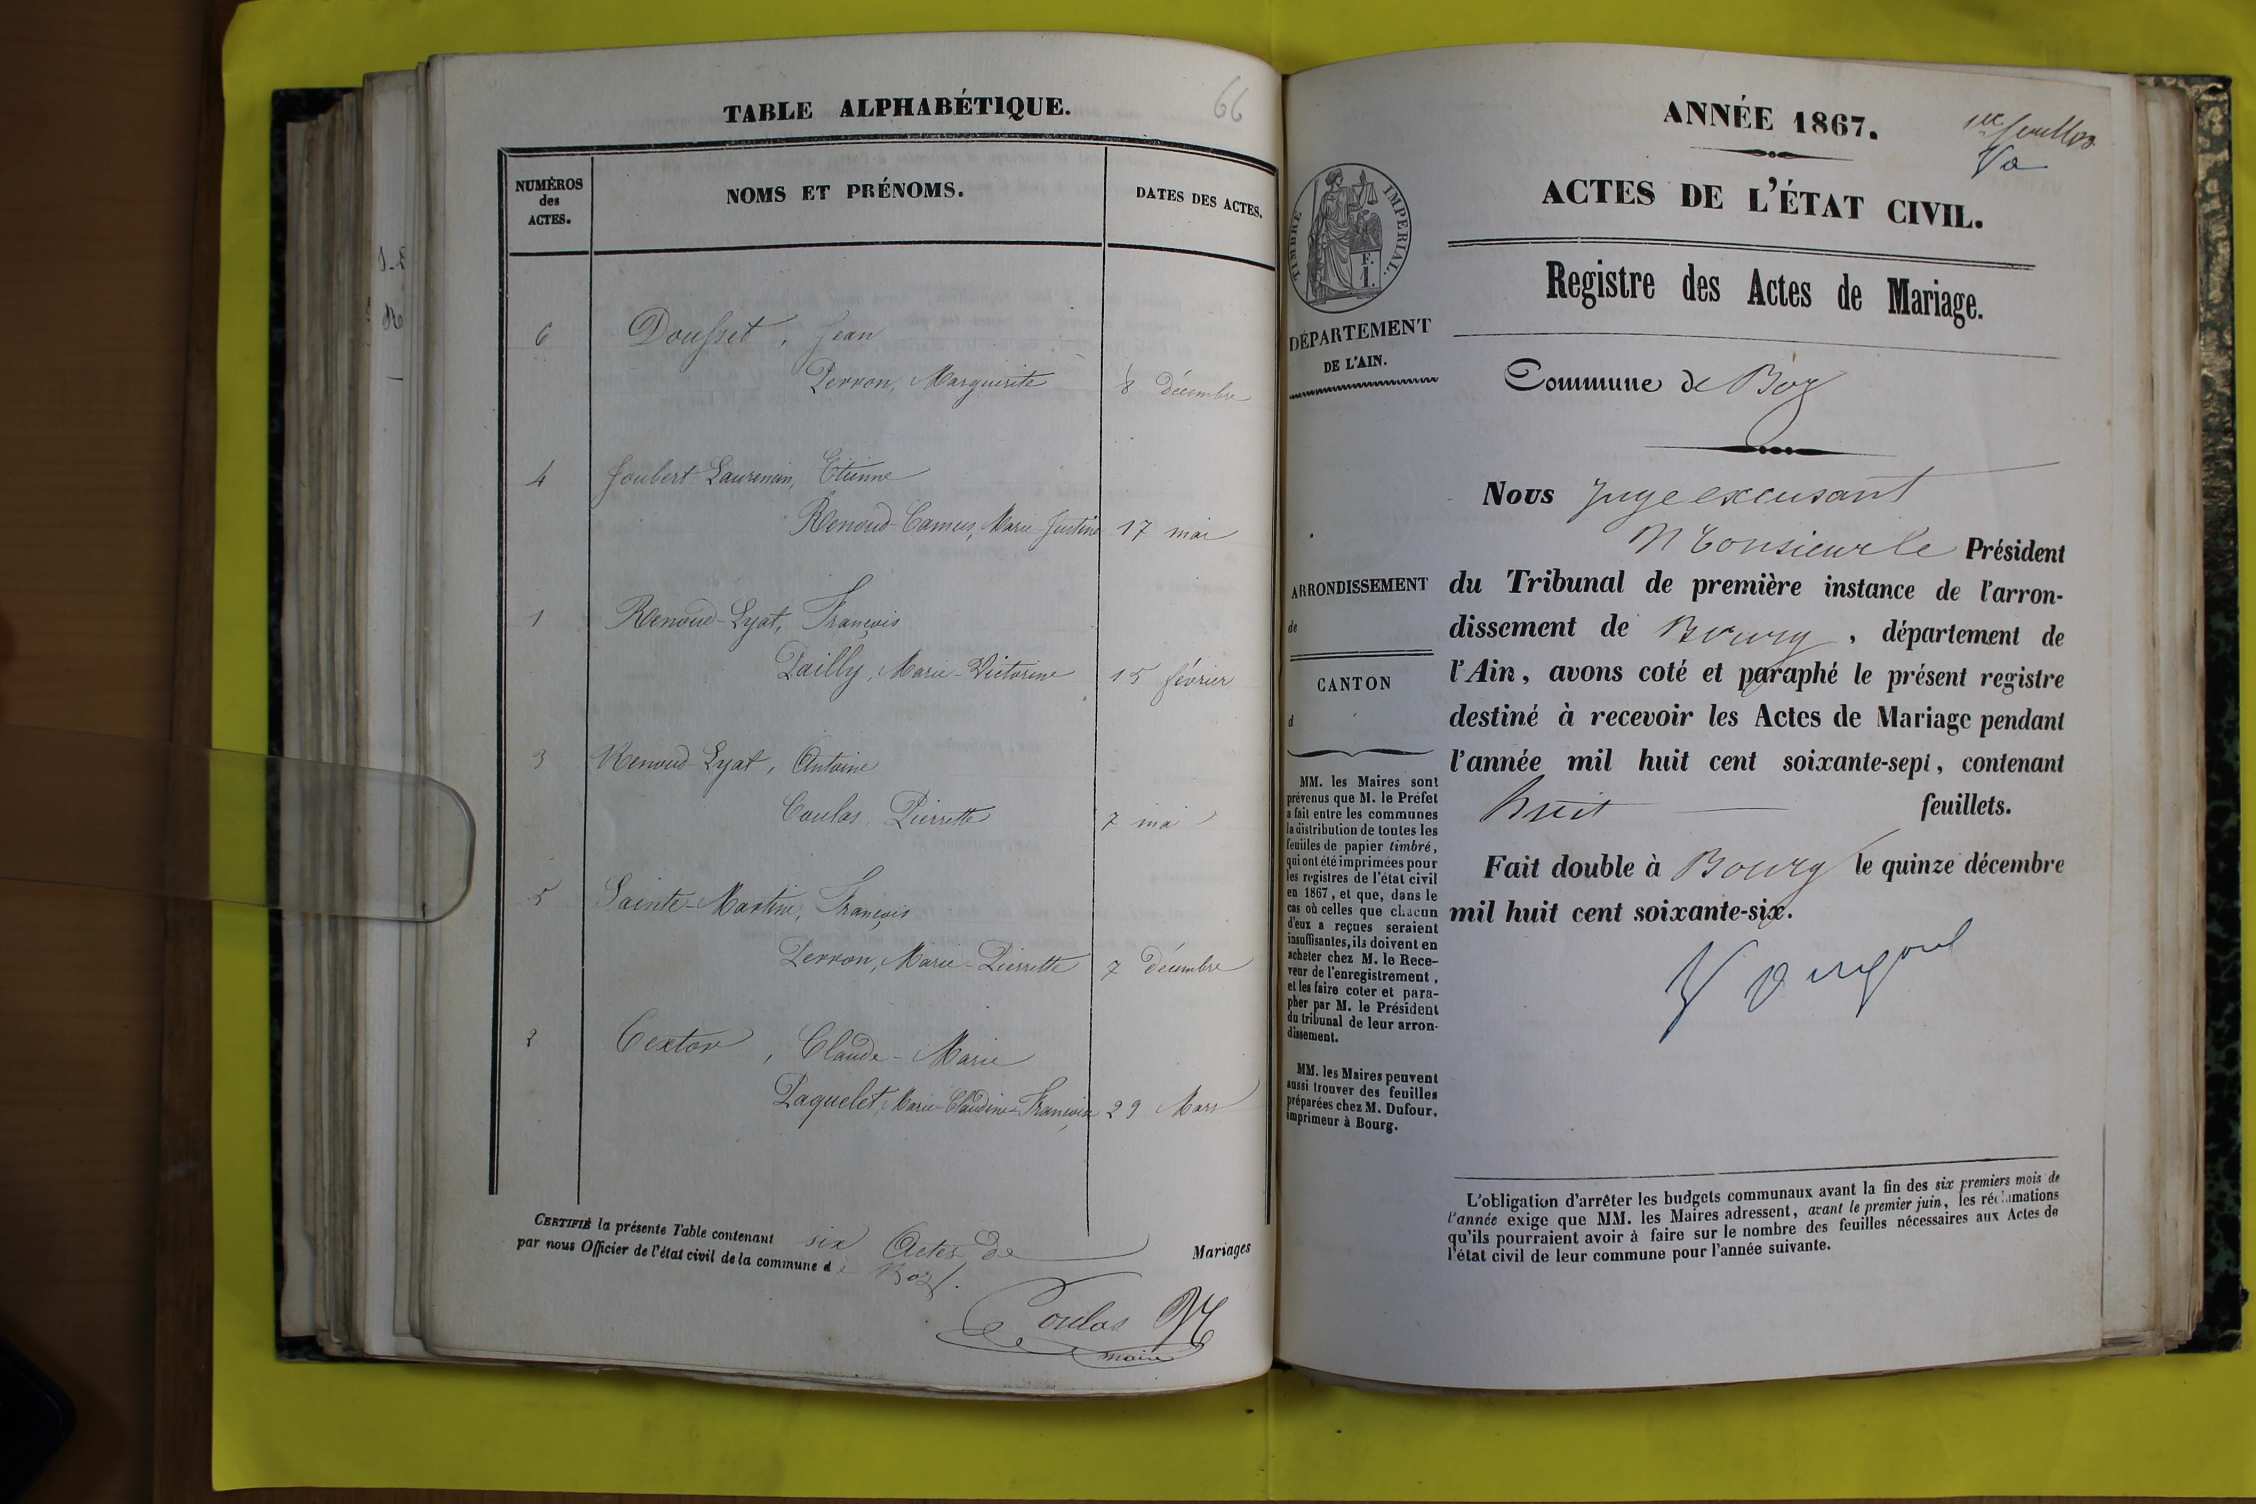 TABLE ALPHABÉTIQUE.
66
NUMÉROS
des
ACTES.
NOMS ET PRÉNOMS.
DATES DES ACTES.
6 Dousset, Jean
Perron, Marguerite 8 décembre
4 Joubert-Laurencin, Etienne
Renoud-Camus, Marie-Justine 17 mai
1 Renoud-Lyat, François
Pailly, Marie-Victorine 15 février
3 Renoud-Lyat, Antoine
Coulas, Pierrette 7 mai
5 Sainte-Martine, François
Perron, Marie-Pierrette 7 décembre
2 Textor, Claude-Marie
Paquelet, Marie-Claudine-Françoise 29 Mars
CERTIFIÉ la présente Table contenant six Actes de Mariages
par nous Officier de l'état civil de la commune de Boz.
Coulas
maire
ANNÉE 1867.
1er feuillet
ACTES DE L'ÉTAT CIVIL.
TIMBRE IMPÉRIAL.
F.
1.
Registre des Actes de Mariage.
DÉPARTEMENT
DE L'AIN.
Commune de Boz
Nous Juge excusant
Monsieur le Président
ARRONDISSEMENT
de
CANTON
d
du Tribunal de première instance de l'arron-
dissement de Bourg, département de
l'Ain, avons coté et paraphé le présent registre
destiné à recevoir les Actes de Mariage pendant
l'année mil huit cent soixante-sept, contenant
huit feuillets.
Fait double à Bourg le quinze décembre
mil huit cent soixante-six.
MM. les Maires sont
prévenus que M. le Préfet
a fait entre les communes
la distribution de toutes les
feuilles de papier timbré,
qui ont été imprimées pour
les registres de l'état civil
en 1867, et que, dans le
cas où celles que chacun
d'eux a reçues seraient
insuffisantes, ils doivent en
acheter chez M. le Rece-
veur de l'enregistrement,
et les faire coter et para-
pher par M. le Président
du tribunal de leur arron-
dissement.
MM. les Maires peuvent
aussi trouver des feuilles
préparées chez M. Dufour,
imprimeur à Bourg.
L'obligation d'arrêter les budgets communaux avant la fin des six premiers mois de
l'année exige que MM. les Maires adressent, avant le premier juin, les réclamations
qu'ils pourraient avoir à faire sur le nombre des feuilles nécessaires aux Actes de
l'état civil de leur commune pour l'année suivante.